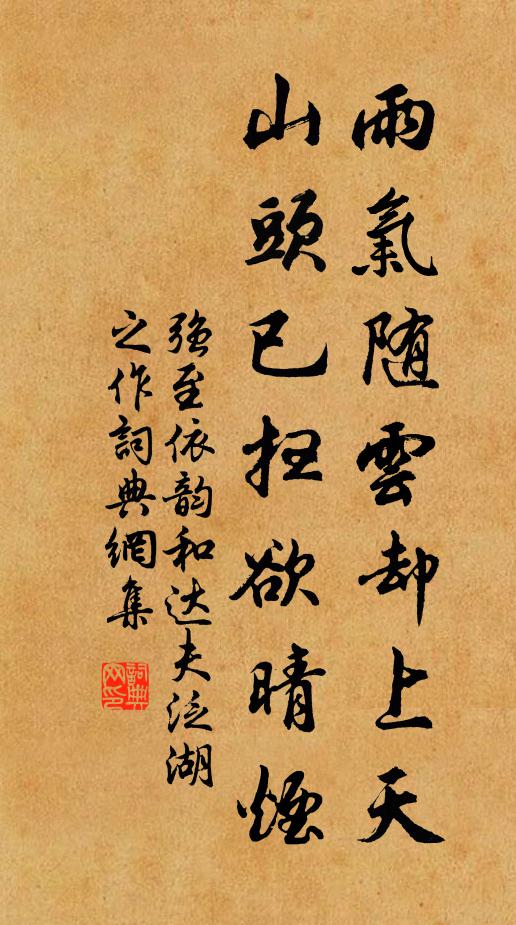 雨氣随雲却上天
山頭已扫欲晴煙
強至依韵和达夫泛湖
之作詞典網集
詞典
网印